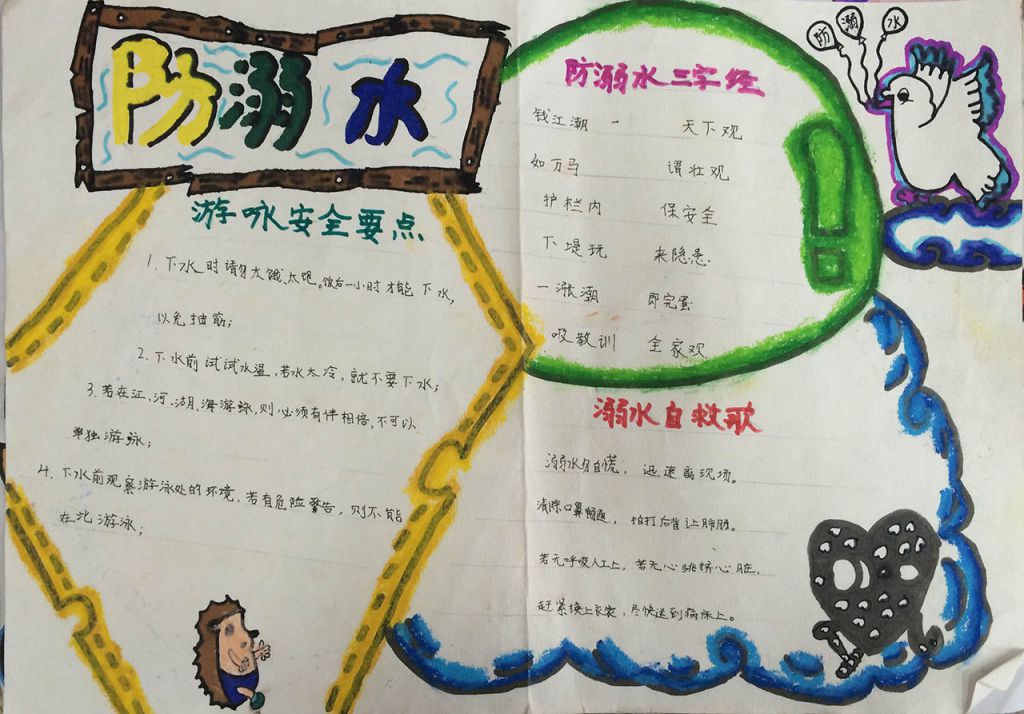 防溺水
游咏安全要点
1. 下水时请勿太饿、太饱。饭后一小时才能下水,
以免抽筋;
2. 下水前试试水温,若水太冷,就不要下水;
3. 若在江、河、湖、海游泳,则必须有伴相陪,不可以
单独游泳;
4. 下水前观察游泳处的环境,若有危险警告,则不能
在此游泳;
防溺水三字经
钱江潮 一 天下观
如万马 谓壮观
护栏内 保安全
下堤玩 来隐患.
一涨潮 即完蛋
吸教训 全家欢
溺水自救歌
溺水勿自慌, 迅速离现场。
清除口鼻畅通, 拍打后背让肺肠。
若无呼吸人工上, 若无心跳挤心脏,
赶紧换上衣裳, 尽快送到病床上。
防 溺 水